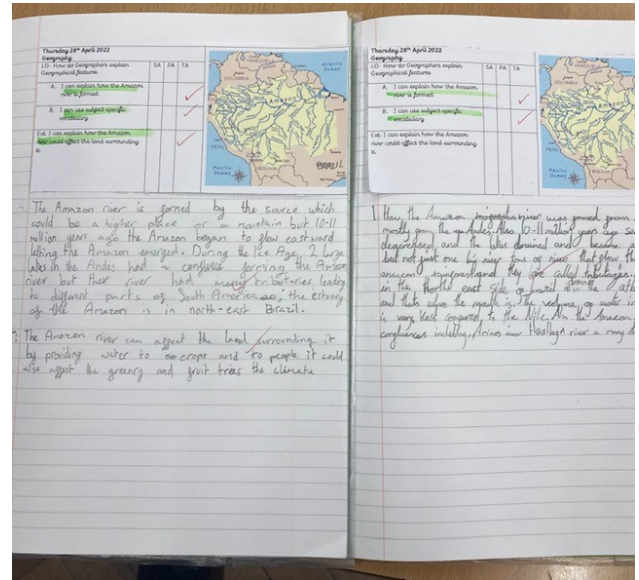 Thursday 28th April 2022
Geography
LO- How do Geographers explain
Geographical features
SA PA TA
A. I can explain how the Amazon
river is formed
B. I can use subject specific
vocabulary
Ext: I can explain how the Amazon
river could affect the land surrounding
it.
Atlantic
Ocean
VENEZUELA
COLOMBIA
Amazon
PERU
BRAZIL
BOLIVIA
Pacific
Ocean
The Amazon river is formed by the source which
could be a higher place or a mountain but 10-11
million years ago the Amazon began to flow eastward
letting the Amazon emerged. During the Ice Age, 2 large
lakes in the Andes had a confluence forming the Amazon
river but that river had many tributaries leading
to different parts of South America, the estuary
of the Amazon is in north-east Brazil.
The Amazon river can affect the land surrounding it
by providing water to crops and to people it could
also affect the greenry and fruit trees the climate
Thursday 28th April 2022
Geography
LO- How do Geographers explain
Geographical features
SA PA TA
A. I can explain how the Amazon
river is formed
B. I can use subject specific
vocabulary
Ext: I can explain how the Amazon
river could affect the land surrounding
it.
VENEZUELA
COLOMBIA
Amazon
PERU
BOLIVIA
Pacific
Ocean
How, the Amazon river was formed from
mostly from the Andes. Also 10-11 million years ago sea
degreesed, and the lakes drained and became a
but not just one big river tons of river that flow th
and they are called tributaries.
in the North east side of brazil
and thats where the mouth is. The volume of water i
is very vast compared to the Nile. In the Amazon
confluences including. river a many d